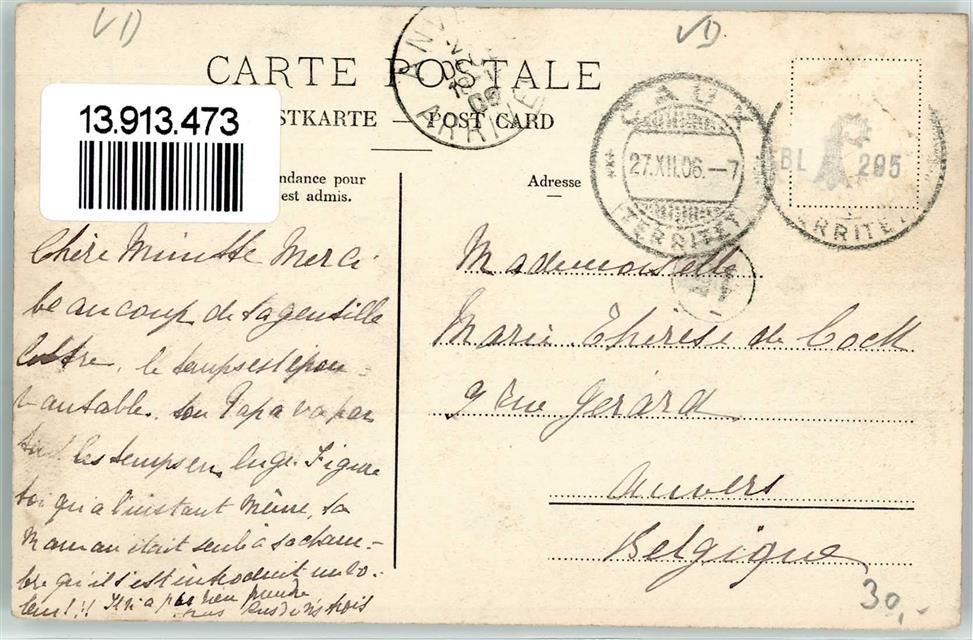 VD
VD
CARTE POSTALE
13.913.473
STKARTE — POST CARD
ndance pour
est admis.
Adresse
ANV
ARRIVÉE
06
CAUX
27.XII.06.—7
(TERRITET)
BL 295
RRITET
Chère Minette Merci
beaucoup de ta gentille
lettre, le temps est épou-
vantable. ton Papa va par
tous les temps en luge. Figure
toi qu'à l'instant même, ta
Maman était seule à sa cham-
bre qu'il s'est introduit un vo-
leur!! Il n'a pas rien prendre
nous
Mademoiselle
Marie Thérèse de Cock
9 rue Gérard
Anvers
Belgique
30,-